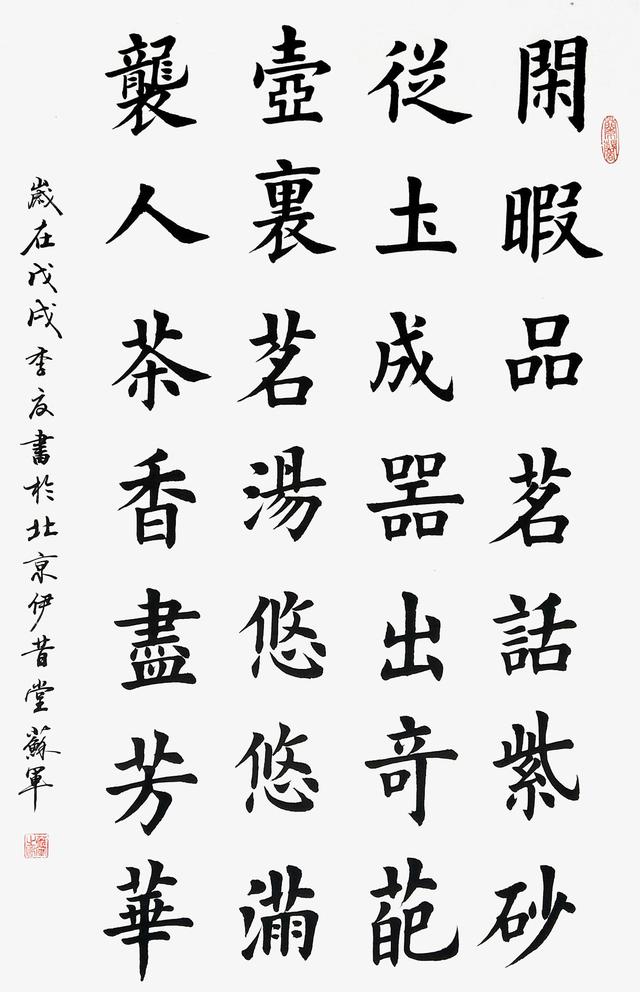 閑暇品茗話紫砂
従圡成噐出奇葩
壺裏茗湯悠悠滿
襲人茶香盡芳華
歲在戊戌季夏書於北京伊昔堂蘇軍